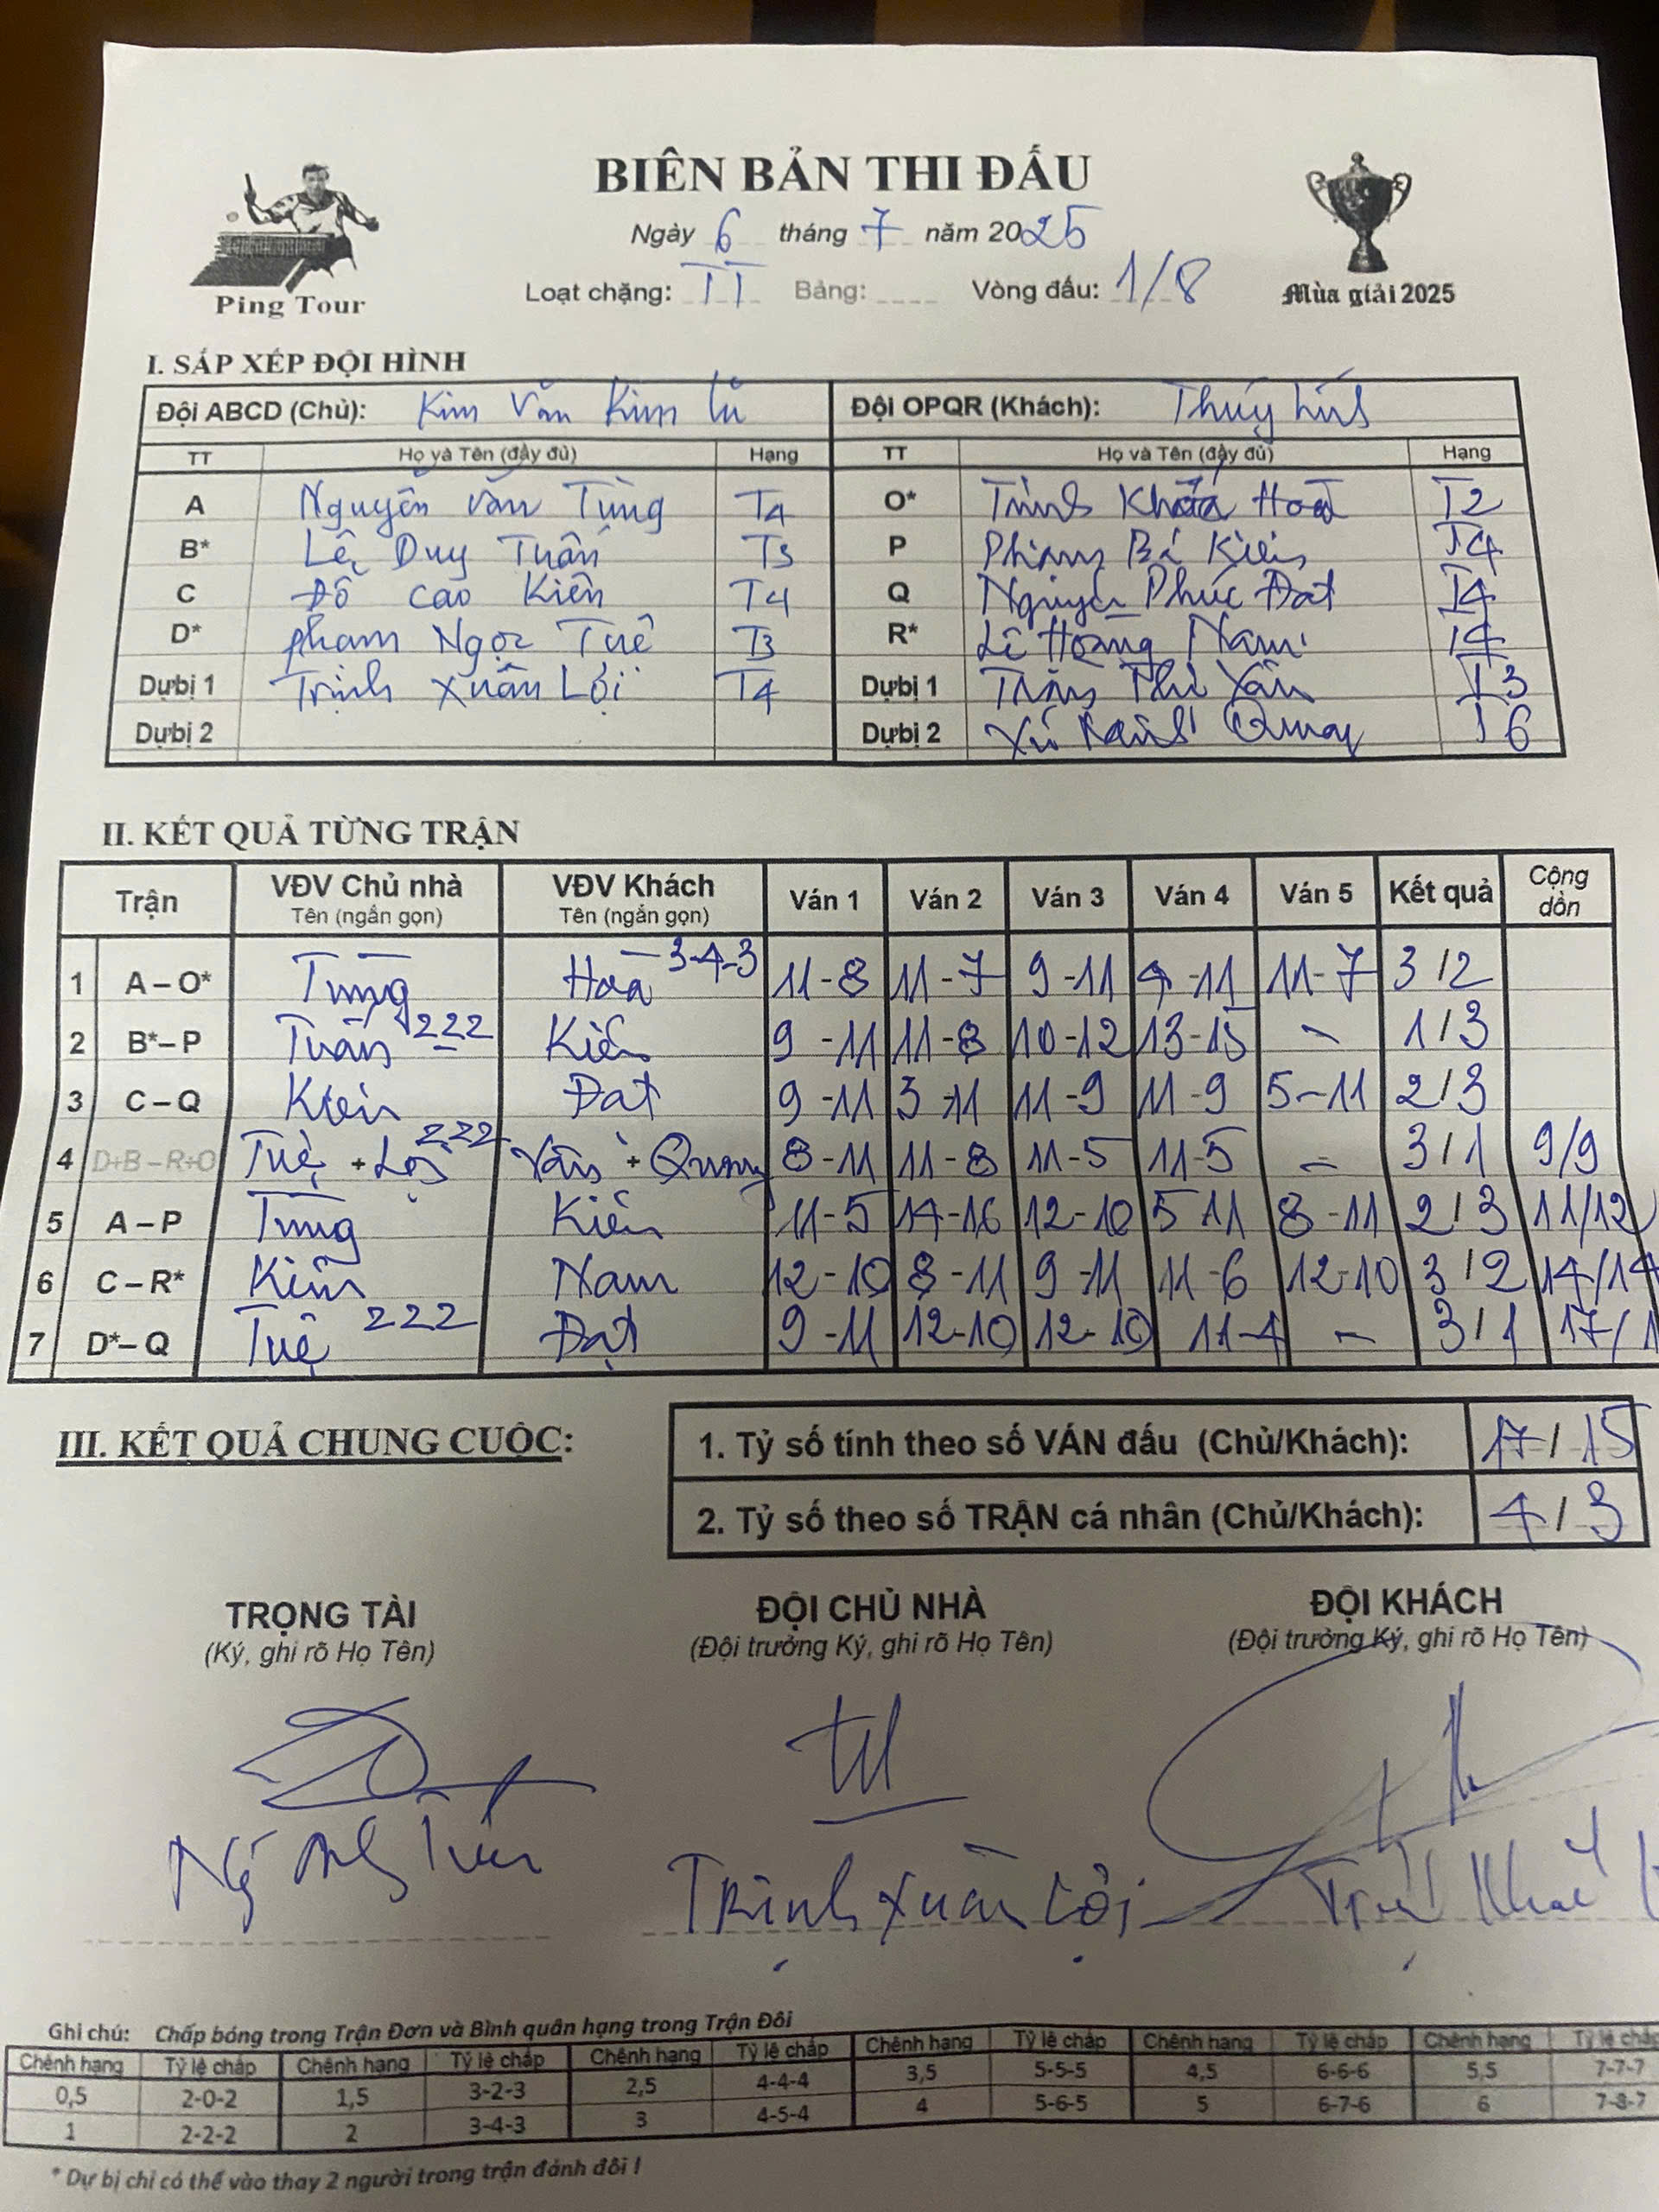 BIÊN BẢN THI ĐẤU
Ngày 6 tháng 7 năm 2025
Loạt chặng: TT Bảng: Vòng đấu: 1/8
Ping Tour
Mùa giải 2025
I. SẮP XẾP ĐỘI HÌNH
Đội ABCD (Chủ): Kim Văn Kim Đội OPQR (Khách): Thúy
TT Họ và Tên (đầy đủ) Hạng TT Họ và Tên (đầy đủ) Hạng
A Nguyễn Văn Tùng T4 O* Trịnh Khắc Hoà T2
B* Lê Duy Tuấn T3 P Phạm Bá Kiên T4
C Đỗ Cao Kiên T4 Q Nguyễn Phúc Đạt T4
D* Phạm Ngọc Tuệ T3 R* Lê Hoàng Nam T4
Dự bị 1 Trịnh Xuân Lợi T4 Dự bị 1 Trần Thị Vân T3
Dự bị 2 Dự bị 2 Quang T6
II. KẾT QUẢ TỪNG TRẬN
Trận VĐV Chủ nhà VĐV Khách Ván 1 Ván 2 Ván 3 Ván 4 Ván 5 Kết quả Cộng dồn
Tên (ngắn gọn) Tên (ngắn gọn)
1 A – O* Tùng Hoà 3-4-3 11-8 11-7 9-11 4-11 11-7 3/2
2 B*– P Tuấn 222 Kiên 9-11 11-8 10-12 13-15 - 1/3
3 C – Q Kiên Đạt 9-11 3-11 11-9 11-9 5-11 2/3
4 D+B – R+O Tuệ + Lợi 222 Vân + Quang 8-11 11-8 11-5 11-5 - 3/1 9/9
5 A – P Tùng Kiên 11-5 14-16 12-10 5-11 8-11 2/3 11/12
6 C – R* Kiên Nam 12-10 8-11 9-11 11-6 12-10 3/2 14/14
7 D*– Q Tuệ 222 Đạt 9-11 12-10 12-10 11-4 - 3/1 17/1
III. KẾT QUẢ CHUNG CUỘC:
1. Tỷ số tính theo số VÁN đấu (Chủ/Khách): 17/15
2. Tỷ số theo số TRẬN cá nhân (Chủ/Khách): 4/3
TRỌNG TÀI ĐỘI CHỦ NHÀ ĐỘI KHÁCH
(Ký, ghi rõ Họ Tên) (Đội trưởng Ký, ghi rõ Họ Tên) (Đội trưởng Ký, ghi rõ Họ Tên)
Trịnh Xuân Lợi Trịnh Khắc
Ghi chú: Chấp bóng trong Trận Đơn và Bình quân hạng trong Trận Đôi
Chênh hạng Tỷ lệ chấp Chênh hạng Tỷ lệ chấp Chênh hạng Tỷ lệ chấp Chênh hạng Tỷ lệ chấp Chênh hạng Tỷ lệ chấp Chênh hạng Tỷ lệ chấp
0,5 2-0-2 1,5 3-2-3 2,5 4-4-4 3,5 5-5-5 4,5 6-6-6 5,5 7-7-7
1 2-2-2 2 3-4-3 3 4-5-4 4 5-6-5 5 6-7-6 6 7-8-7
* Dự bị chỉ có thể vào thay 2 người trong trận đánh đôi !